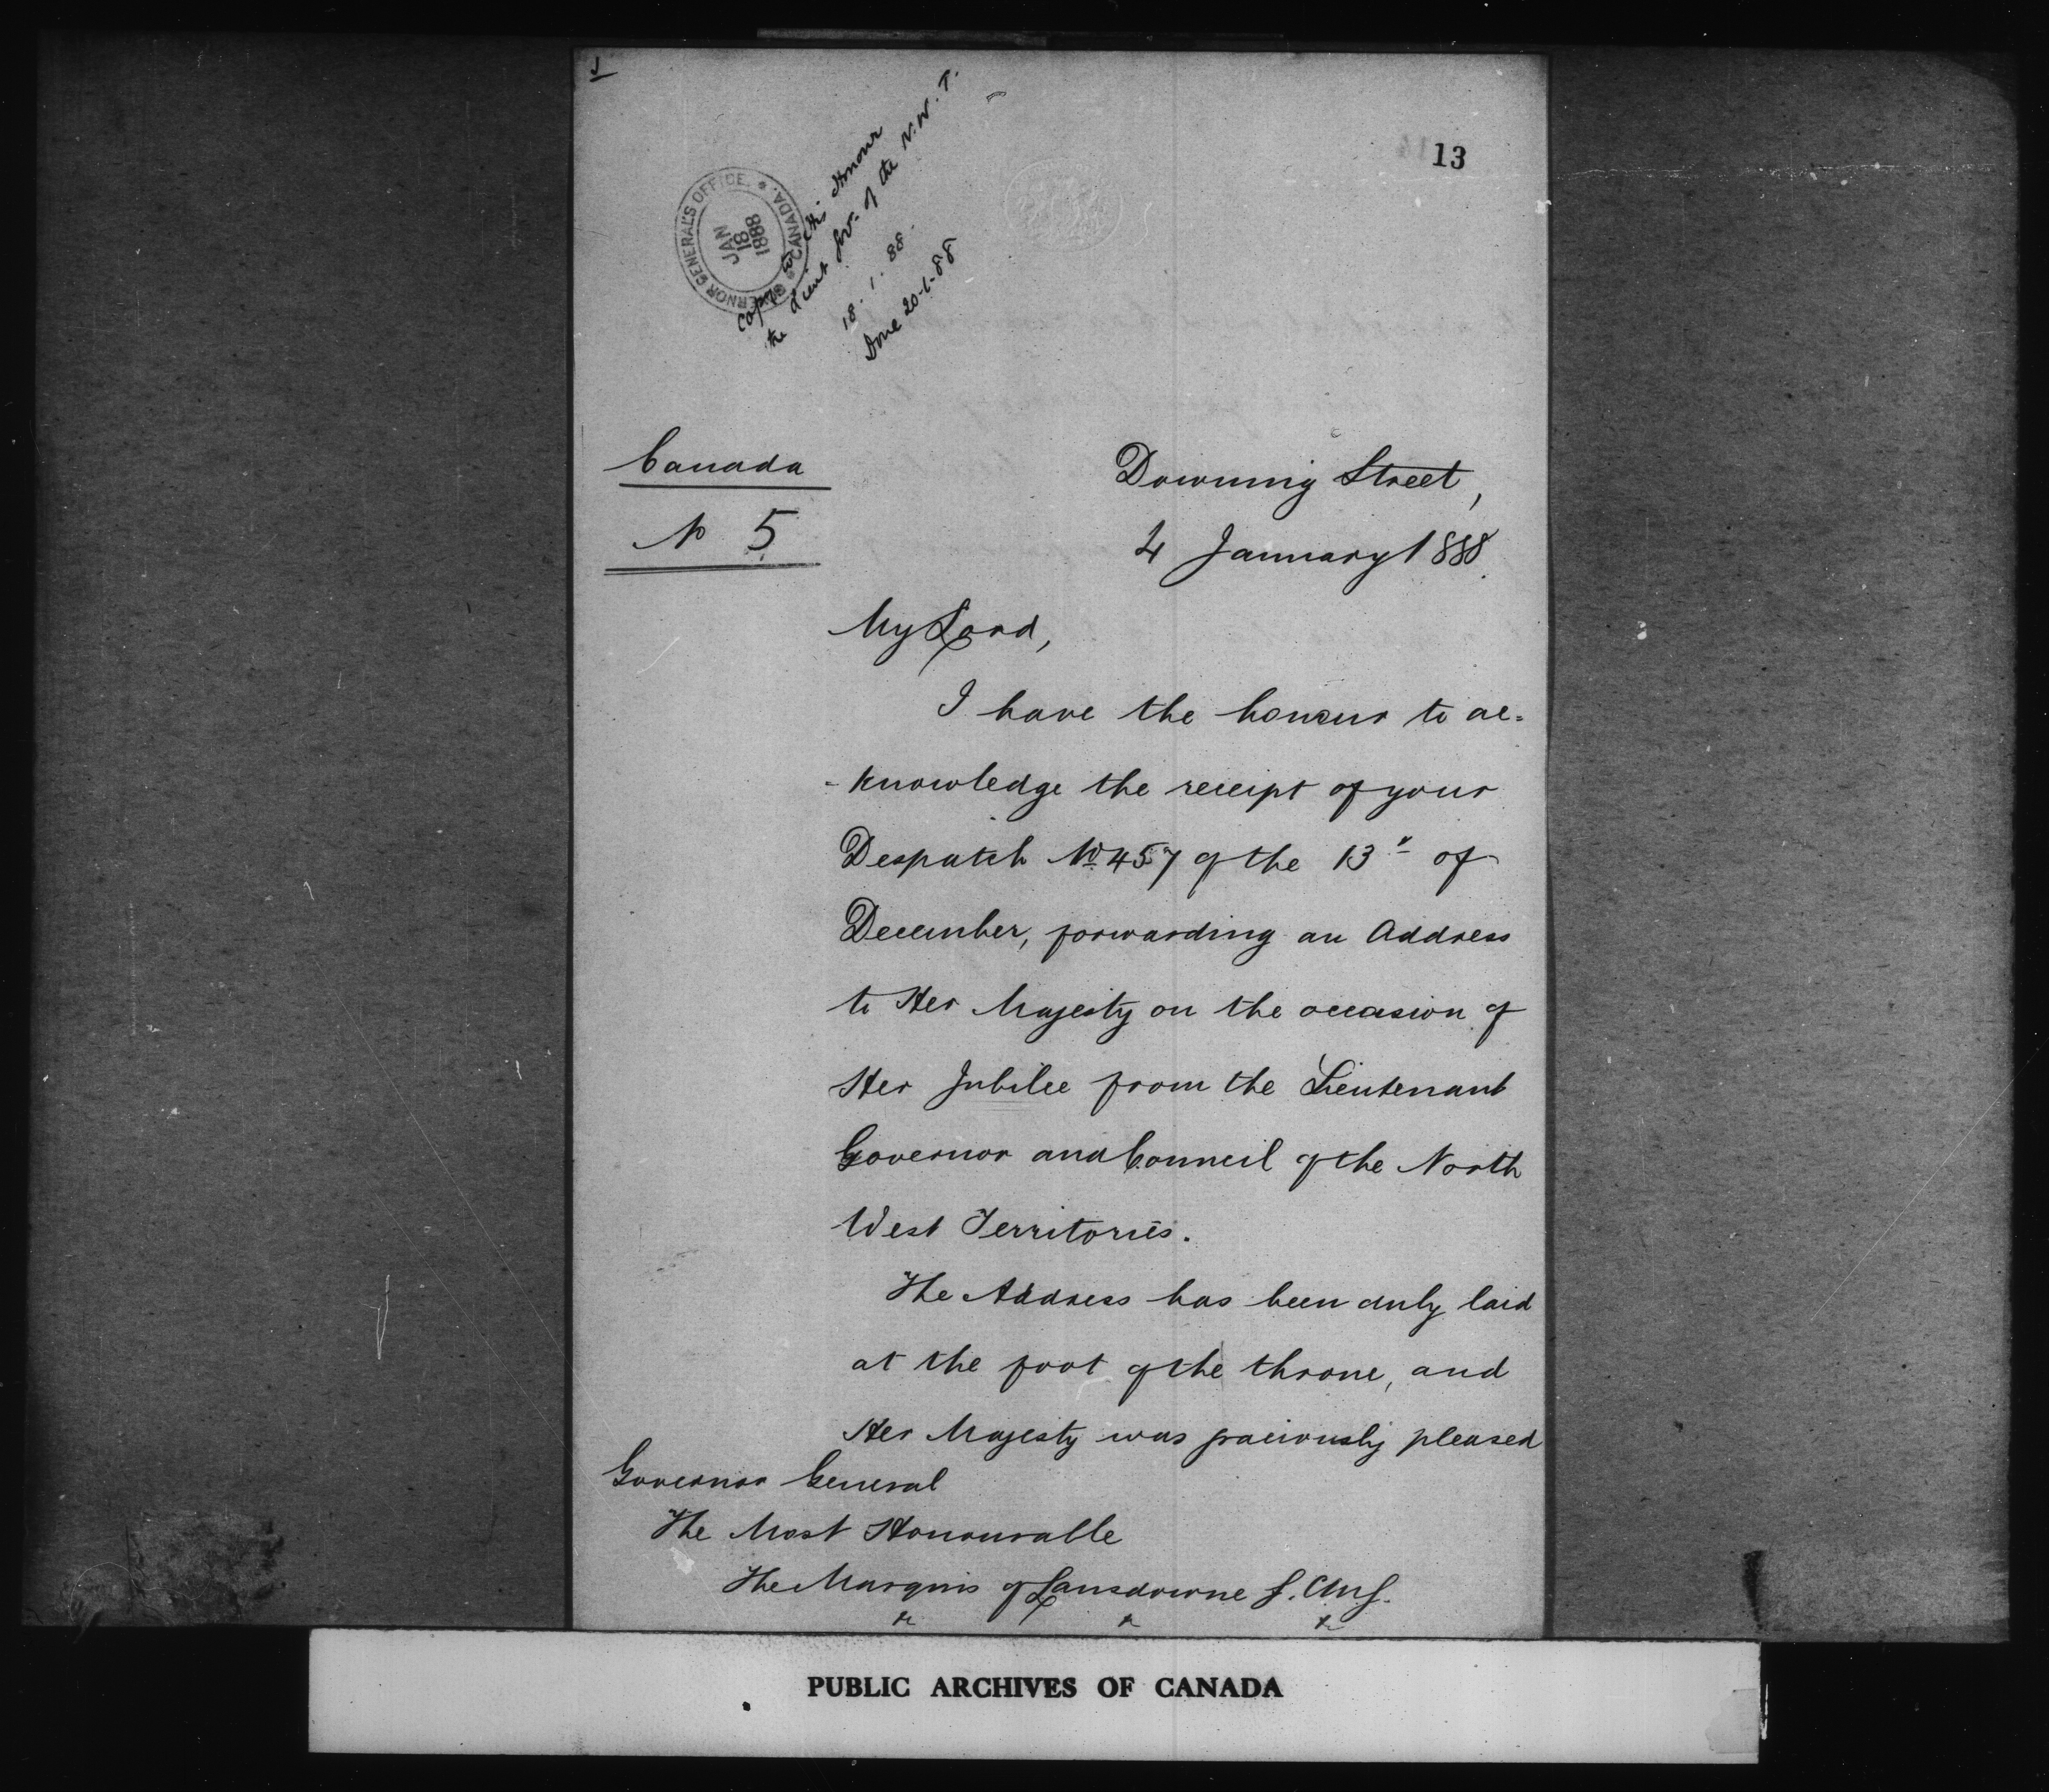 13
GOVERNOR GENERAL'S OFFICE. * CANADA. *
JAN
18
1888
Copy to His Honour
the Lieut Gov. of the N.W.T.
18.1.88.
Done 20-1-88
Canada
No 5
Downing Street,
4 January 1888.
My Lord,
I have the honour to ac=
-knowledge the receipt of your
Despatch No 457 of the 13th of
December, forwarding an Address
to Her Majesty on the occasion of
Her Jubilee from the Lieutenant
Governor and Council of the North
West Territories.
The Address has been duly laid
at the foot of the throne, and
Her Majesty was graciously pleased
Governor General
The Most Honourable
The Marquis of Lansdowne G.C.M.G.
&c &c &c
PUBLIC ARCHIVES OF CANADA